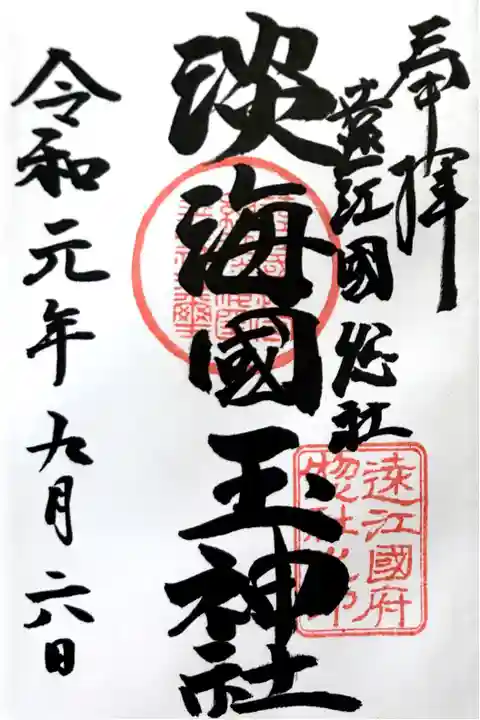 奉拝
遠江國総社
淡海國玉神社
令和元年九月六日
遠江國府
惣社之印